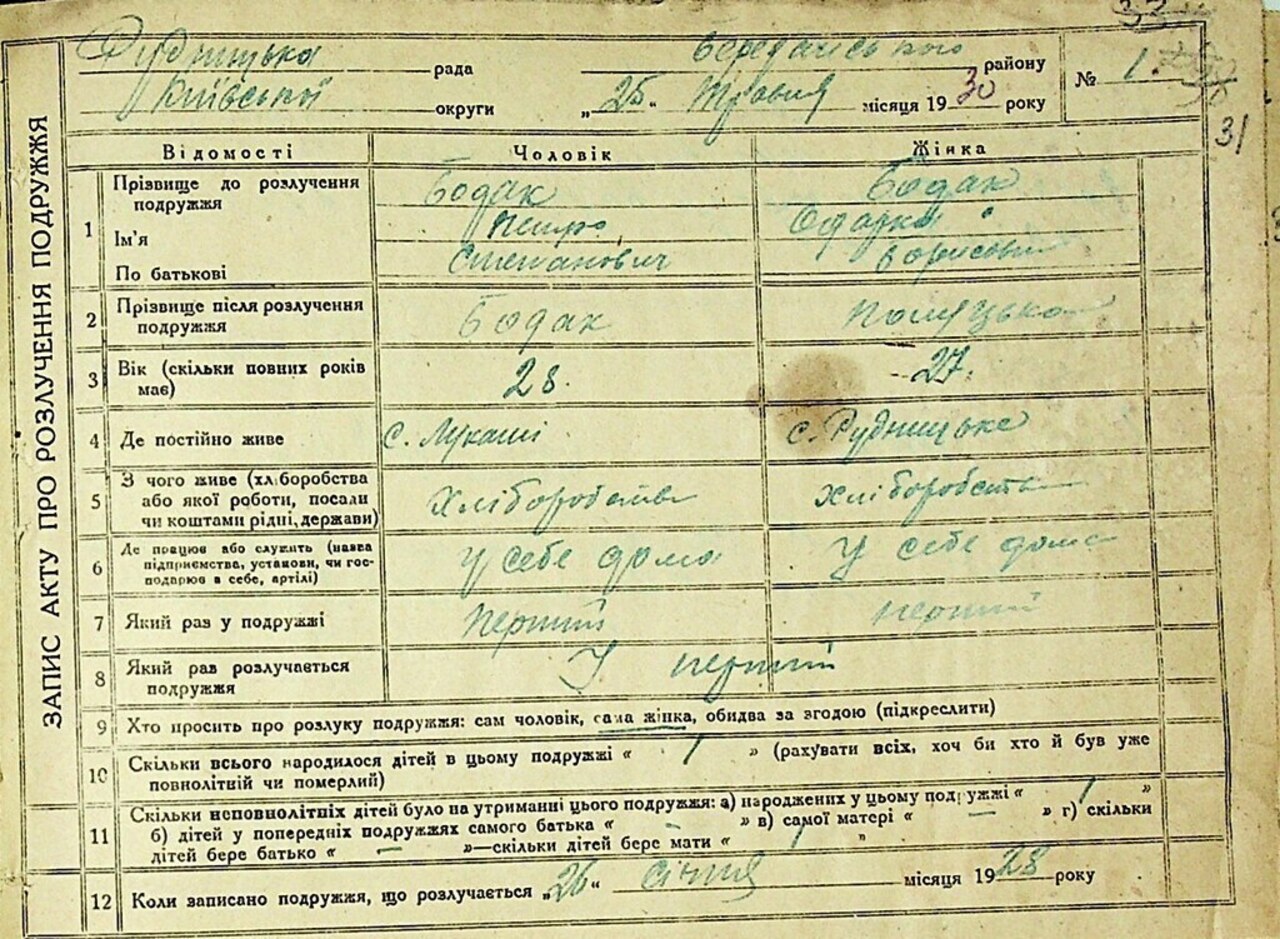 ЗАПИС АКТУ ПРО РОЗЛУЧЕННЯ ПОДРУЖЖЯ
Рудницька рада району
Київської округи „25“ Травня місяця 1930 року № 1.
31
Відомості Чоловік Жінка
1 Прізвище до розлучення подружжя Бодак Бодак
Ім'я Петро Одарка
По батькові Степанович Борисовна
2 Прізвище після розлучення подружжя Бодак
3 Вік (скільки повних років має) 28. 27.
4 Де постійно живе с. Лукаші с. Рудницьке
5 З чого живе (хліборобства або якої роботи, посали чи коштами рідні, держави) Хліборобства Хліборобства
6 Де працює або служить (назва підприємства, установи, чи господарює в себе, артілі) у себе дома У себе дома
7 Який раз у подружжі перший перший
8 Який раз розлучається подружжя У перший
9 Хто просить про розлуку подружжя: сам чоловік, сама жінка, обидва за згодою (підкреслити)
10 Скільки всього народилося дітей в цьому подружжі « 1 » (рахувати всіх, хоч би хто й був уже
повнолітній чи померлий)
11 Скільки неповнолітніх дітей було на утриманні цього подружжя: а) народжених у цьому подружжі « 1 »
б) дітей у попередніх подружжях самого батька « – » в) самої матері « – » г) скільки
дітей бере батько « – »—скільки дітей бере мати « 1 »
12 Коли записано подружжя, що розлучається „26“ січня місяця 1928 року